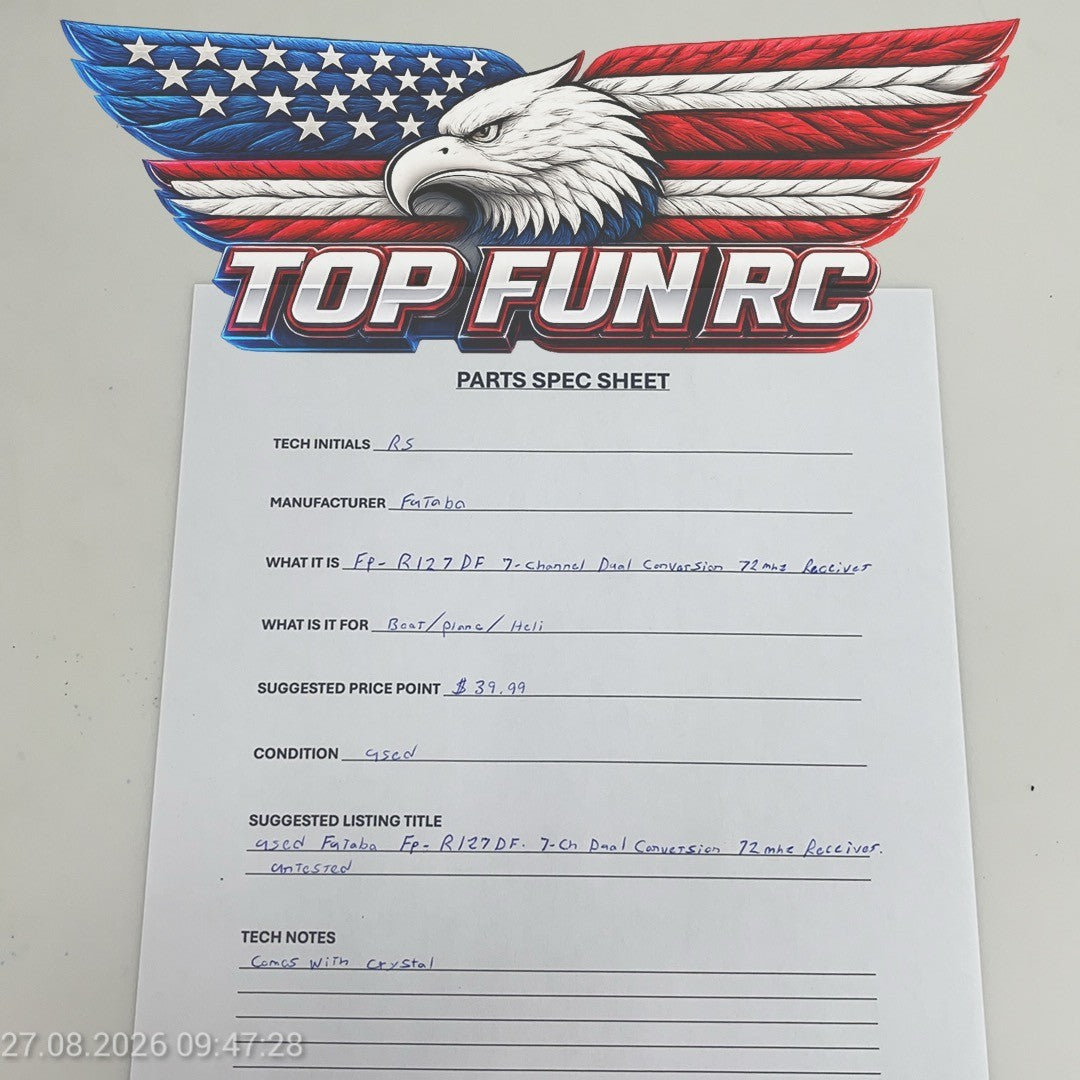 TOP FUN RC
PARTS SPEC SHEET
TECH INITIALS RS
MANUFACTURER Futaba
WHAT IT IS Fp-R127DF 7-Channel Dual Conversion 72mhz Receiver
WHAT IS IT FOR Boat/plane/Heli
SUGGESTED PRICE POINT $39.99
CONDITION used
SUGGESTED LISTING TITLE
used Futaba Fp-R127DF. 7-Ch Dual Conversion 72mhz Receiver.
untested
TECH NOTES
Comes with crystal
27.08.2026 09:47:28